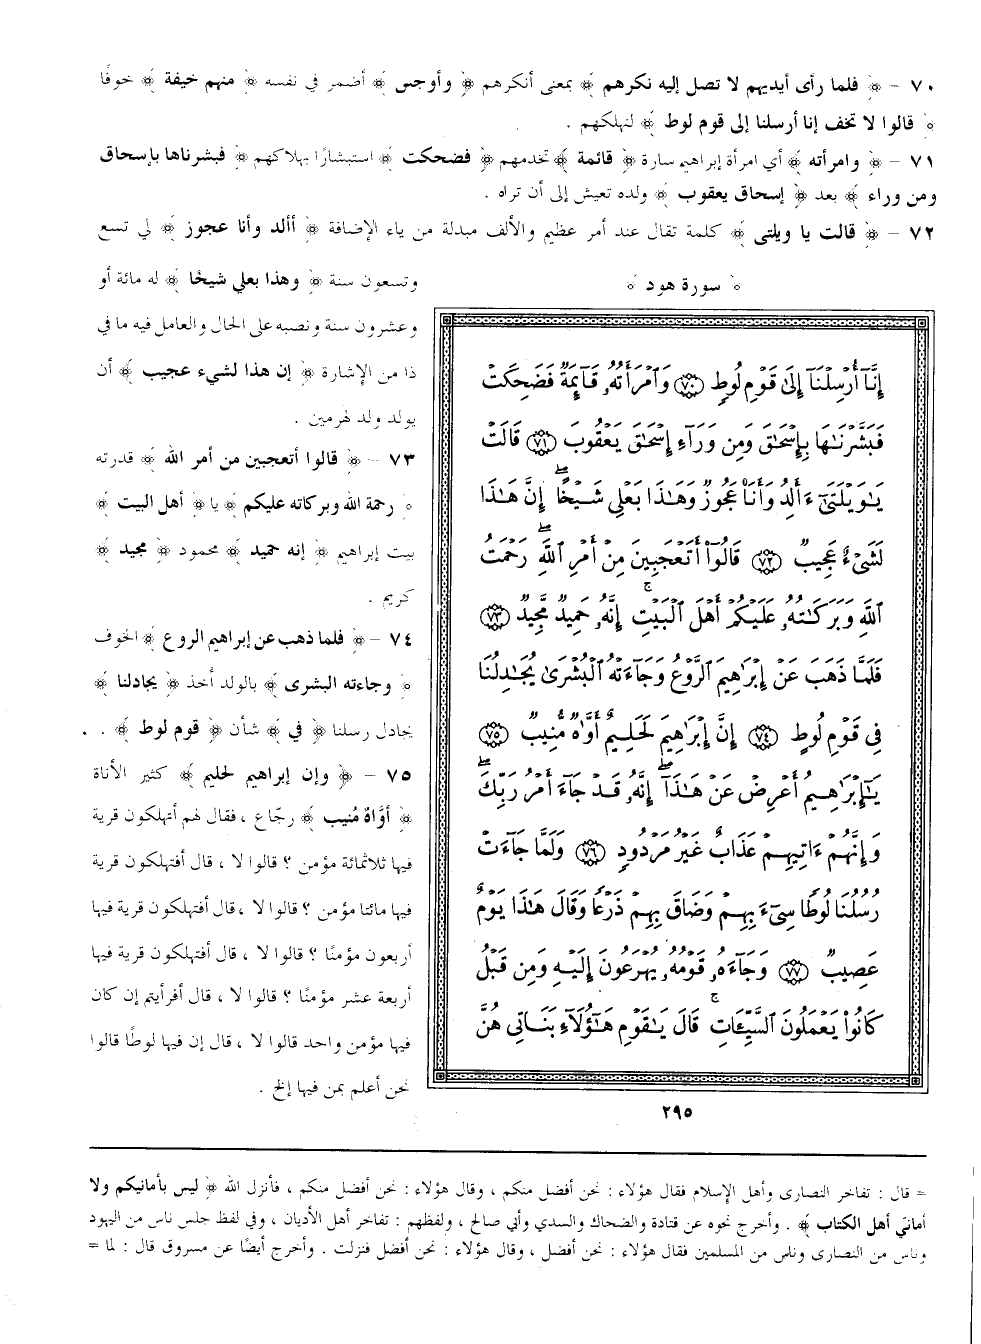 ٧٠ - ﴿ فلما رأى أيديهم لا تصل إليه نكرهم ﴾ بمعنى أنكرهم ﴿ وأوجس ﴾ أضمر في نفسه ﴿ منهم خيفة ﴾ خوفًا
﴿ قالوا لا تخف إنا أرسلنا إلى قوم لوط ﴾ لنهلكهم .
٧١ - ﴿ وامرأته ﴾ أي امرأة إبراهيم سارة ﴿ قائمة ﴾ تخدمهم ﴿ فضحكت ﴾ استبشارًا بهلاكهم ﴿ فبشرناها بإسحاق
ومن وراء ﴾ بعد ﴿ إسحاق يعقوب ﴾ ولده تعيش إلى أن تراه .
٧٢ - ﴿ قالت يا ويلتى ﴾ كلمة تقال عند أمر عظيم والألف مبدلة من ياء الإضافة ﴿ أألد وأنا عجوز ﴾ لي تسع
وتسعون سنة ﴿ وهذا بعلي شيخًا ﴾ له مائة أو
وعشرون سنة ونصبه على الحال والعامل فيه ما في
ذا من الإشارة ﴿ إن هذا لشيء عجيب ﴾ أن
يولد ولد لهرمين .
٧٣ - ﴿ قالوا أتعجبين من أمر الله ﴾ قدرته
﴿ رحمة الله وبركاته عليكم ﴾ يا ﴿ أهل البيت ﴾
بيت إبراهيم ﴿ إنه حميد ﴾ محمود ﴿ مجيد ﴾
كريم .
٧٤ - ﴿ فلما ذهب عن إبراهيم الروع ﴾ الخوف
﴿ وجاءته البشرى ﴾ بالولد أخذ ﴿ يجادلنا ﴾
يجادل رسلنا ﴿ في ﴾ شأن ﴿ قوم لوط ﴾ . .
٧٥ - ﴿ وإن إبراهيم لحليم ﴾ كثير الأناة
﴿ أوَّاهٌ مُنيب ﴾ رجّاع ، فقال لهم أتهلكون قرية
فيها ثلاثمائة مؤمن ؟ قالوا لا ، قال أفتهلكون قرية
فيها مائتا مؤمن ؟ قالوا لا ، قال أفتهلكون قرية فيها
أربعون مؤمنًا ؟ قالوا لا ، قال أفتهلكون قرية فيها
أربعة عشر مؤمنًا ؟ قالوا لا ، قال أفرأيتم إن كان
فيها مؤمن واحد قالوا لا ، قال إن فيها لوطًا قالوا
نحن أعلم بمن فيها إلخ .
﴿ سورة هود ﴾
إِنَّآ أُرْسِلْنَآ إِلَىٰ قَوْمِ لُوطٍ ﴿٧٠﴾ وَٱمْرَأَتُهُۥ قَآئِمَةٌ فَضَحِكَتْ
فَبَشَّرْنَٰهَا بِإِسْحَٰقَ وَمِن وَرَآءِ إِسْحَٰقَ يَعْقُوبَ ﴿٧١﴾ قَالَتْ
يَٰوَيْلَتَىٰٓ ءَأَلِدُ وَأَنَا۠ عَجُوزٌ وَهَٰذَا بَعْلِى شَيْخًا ۖ إِنَّ هَٰذَا
لَشَىْءٌ عَجِيبٌ ﴿٧٢﴾ قَالُوٓا۟ أَتَعْجَبِينَ مِنْ أَمْرِ ٱللَّهِ ۖ رَحْمَتُ
ٱللَّهِ وَبَرَكَٰتُهُۥ عَلَيْكُمْ أَهْلَ ٱلْبَيْتِ ۚ إِنَّهُۥ حَمِيدٌ مَّجِيدٌ ﴿٧٣﴾
فَلَمَّا ذَهَبَ عَنْ إِبْرَٰهِيمَ ٱلرَّوْعُ وَجَآءَتْهُ ٱلْبُشْرَىٰ يُجَٰدِلُنَا
فِى قَوْمِ لُوطٍ ﴿٧٤﴾ إِنَّ إِبْرَٰهِيمَ لَحَلِيمٌ أَوَّٰهٌ مُّنِيبٌ ﴿٧٥﴾
يَٰٓإِبْرَٰهِيمُ أَعْرِضْ عَنْ هَٰذَآ ۖ إِنَّهُۥ قَدْ جَآءَ أَمْرُ رَبِّكَ ۖ
وَإِنَّهُمْ ءَاتِيهِمْ عَذَابٌ غَيْرُ مَرْدُودٍ ﴿٧٦﴾ وَلَمَّا جَآءَتْ
رُسُلُنَا لُوطًا سِىٓءَ بِهِمْ وَضَاقَ بِهِمْ ذَرْعًا وَقَالَ هَٰذَا يَوْمٌ
عَصِيبٌ ﴿٧٧﴾ وَجَآءَهُۥ قَوْمُهُۥ يُهْرَعُونَ إِلَيْهِ وَمِن قَبْلُ
كَانُوا۟ يَعْمَلُونَ ٱلسَّيِّـَٔاتِ ۚ قَالَ يَٰقَوْمِ هَٰٓؤُلَآءِ بَنَاتِى هُنَّ
٢٩٥
= قال : تفاخر النصارى وأهل الإسلام فقال هؤلاء : نحن أفضل منكم ، وقال هؤلاء : نحن أفضل منكم ، فأنزل الله ﴿ ليس بأمانيكم ولا
أمانيّ أهل الكتاب ﴾ . وأخرج نحوه عن قتادة والضحاك والسدي وأبي صالح ، ولفظهم : تفاخر أهل الأديان ، وفي لفظ جلس ناس من اليهود
وناس من النصارى وناس من المسلمين فقال هؤلاء : نحن أفضل ، وقال هؤلاء : نحن أفضل فنزلت . وأخرج أيضًا عن مسروق قال : لما =